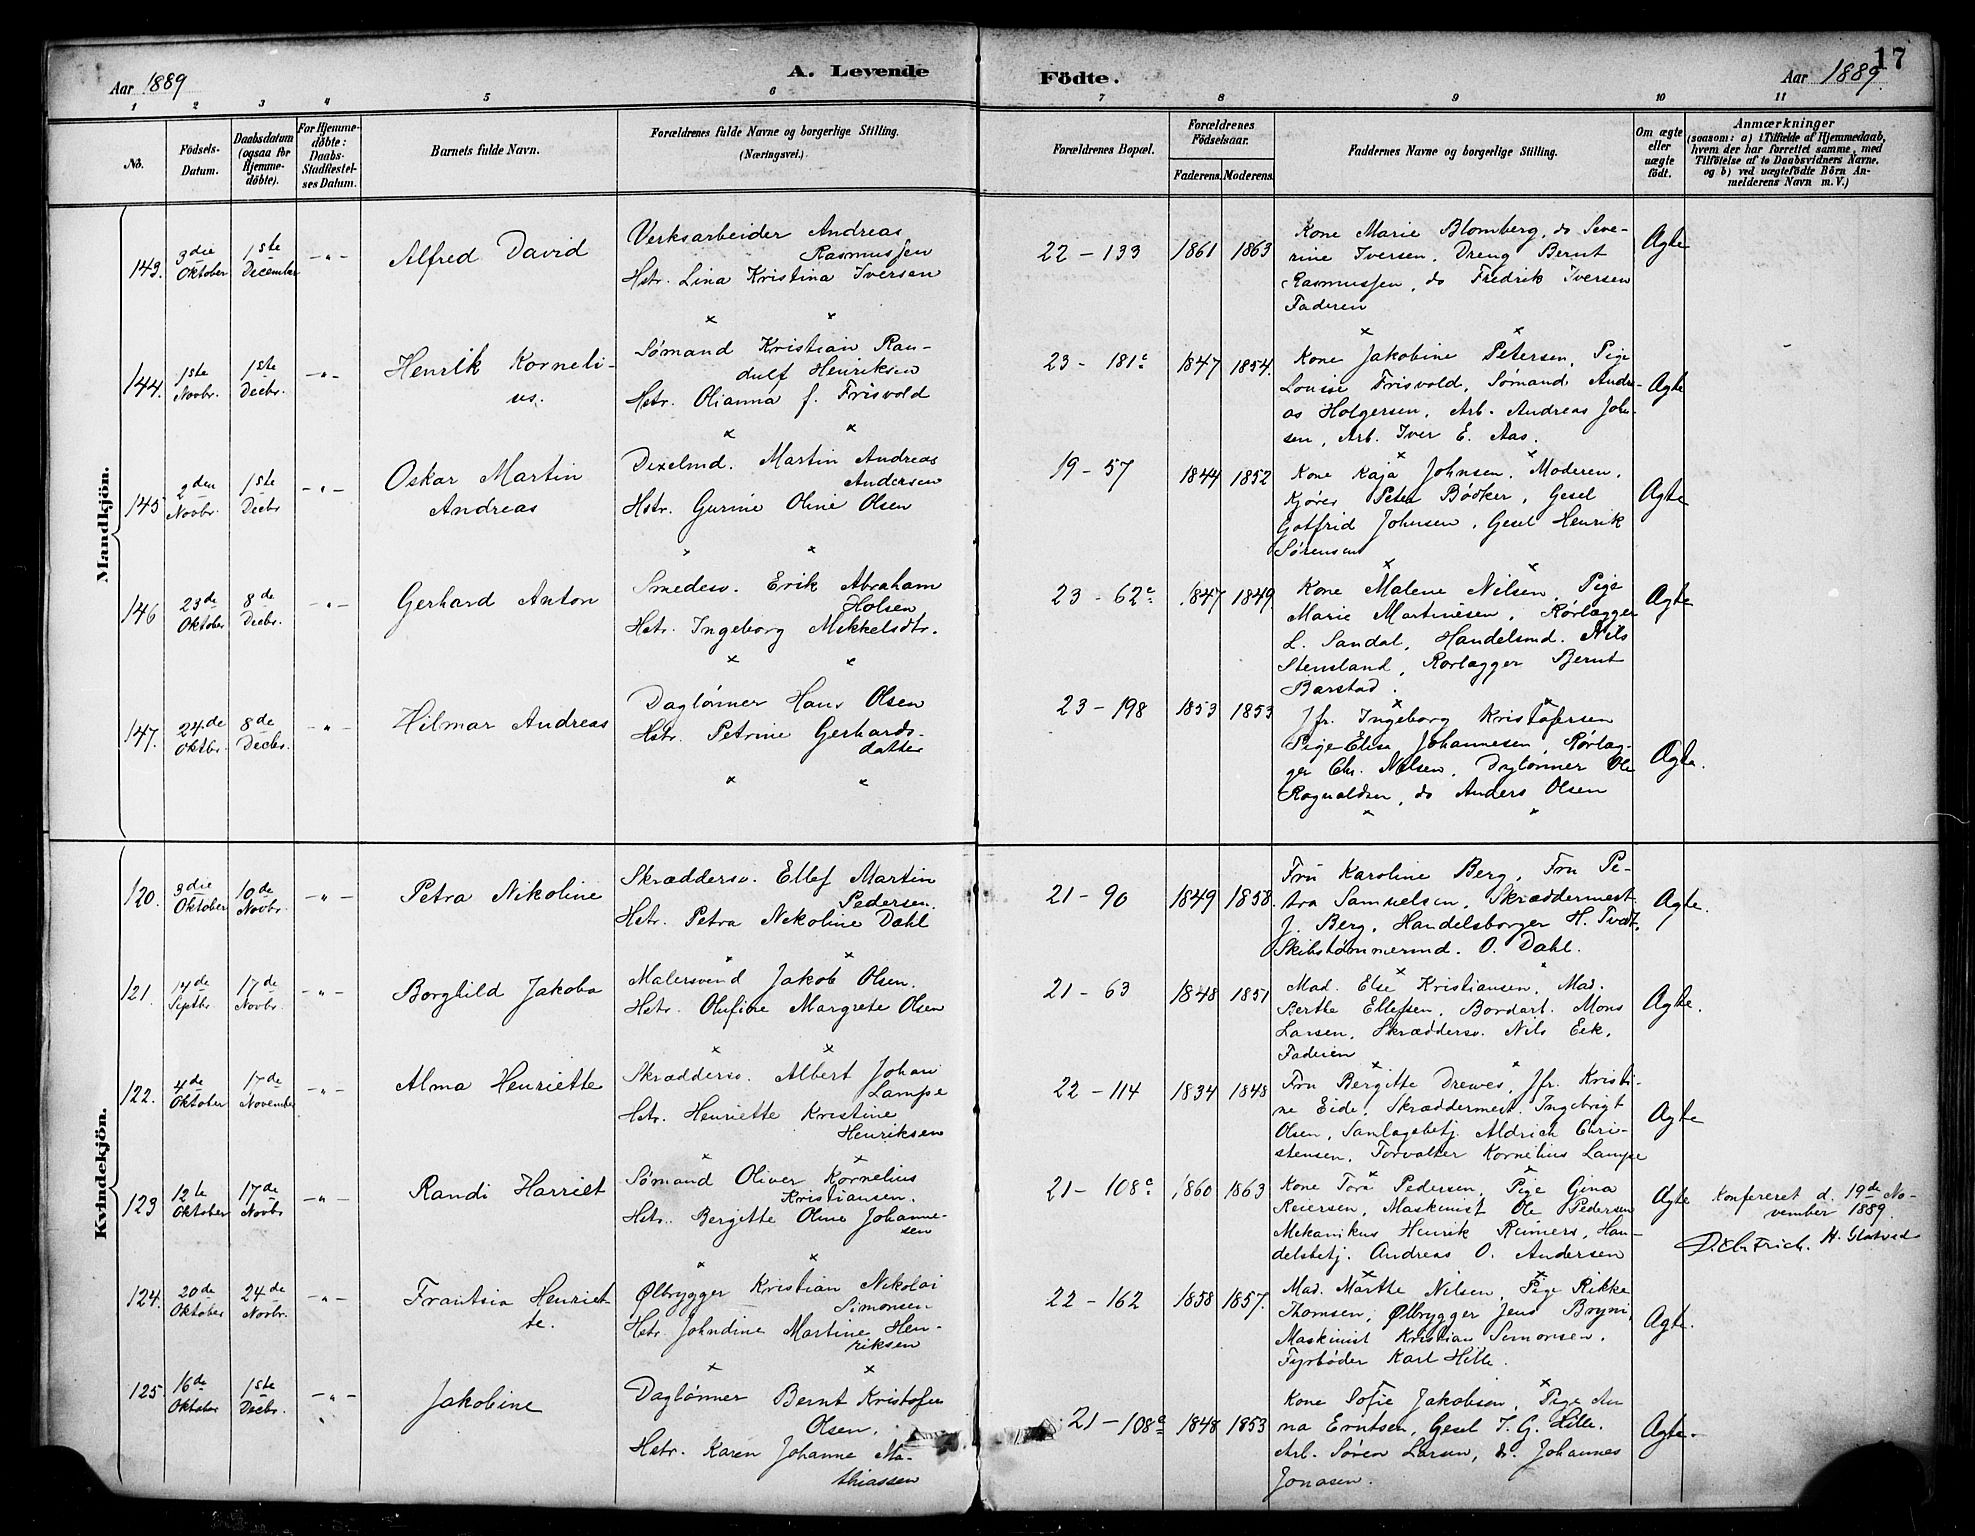 17
Aar 1889
A. Levende
Födte.
Aar 1889.
1 2 3 4 5 6 7 8 9 10 11
No.
Födsels-
Datum.
Daabsdatum
(ogsaa for
Hjemme-
döbte).
For Hjemme-
döbte:
Daabs-
Stadfæstel-
ses Datum.
Barnets fulde Navn.
Forældrenes fulde Navne og borgerlige Stilling.
(Næringsvei.)
Forældrenes Bopæl.
Forældrenes
Födselsaar.
Faderens. Moderens.
Faddernes Navne og borgerlige Stilling.
Om ægte
eller
uægte
födt.
Anmærkninger
(saasom: a) i Tilfælde af Hjemmedaab,
hvem der har forrettet samme, med
Tilföielse af to Daabsvidners Navne.
og b) ved uægtefödte Börn An-
melderens Navn m. V.)
Mandkjön.
143.
3die
Oktober
1ste
December
-"-
Alfred David
Verksarbeider Andreas
Rasmussen
Hstr. Lina Kristina Iversen
22 - 133
1861
1863
Kone Marie Blomberg, do Seve-
rine Iversen, Dreng Bernt
Rasmussen, do Fredrik Iversen
Faderen
Ægte
144.
1ste
Novbr.
1ste
Decbr.
-"-
Henrik Korneli-
us.
Sømand Kristian Ran-
dulf Henriksen
Hstr. Olianna f. Frisvold
23 - 181c
1847
1854.
Kone Jakobine Petersen, Pige
Louise Frisvold, Sømand Andre-
as Holgersen, Arb. Andreas Joh-
sen, Arb. Iver E. Aas.
Ægte
145
2den
Novbr.
1ste
Decbr
-"-
Oskar Martin
Andreas
Dixelmd. Martin Andreas
Andersen
Hstr. Gurine Oline Olsen
19 - 57
1844
1852
Kone Kaja Johnsen, Moderen,
Kjörer Peter Bödker, Gesel
Gotfrid Johnsen, Gesel Henrik
Sørensen
Ægte
146
23de
Oktober
8de
Decbr.
-"-
Gerhard Anton
Smedesv. Erik Abraham
Holsen
Hstr. Ingeborg Mikkelsdtr.
23 - 62c
1847
1849
Kone Malene Nilsen, Pige
Marie Martinesen, Rørlægger
L. Sandal, Handelsmd. Nils
Stensland, Rørlægger Bernt
Barstad.
Ægte
147.
24de
Oktbr.
8de
Decbr.
-"-
Hilmar Andreas
Daglønner Hans Olsen
Hstr. Petrine Gerhards-
datter
23 - 198
1853
1853
Jfr. Ingeborg Kristofersen
Pige Elise Johannesen, Rørlæg-
ger Chr. Nilsen, Daglønner Ole
Rognaldsen, do Anders Olsen
Ægte.
Kvindekjön.
120.
3die
Oktober
10de
Novbr.
-"-
Petra Nikoline
Skræddersv. Ellef Martin
Pedersen.
Hstr. Petra Nikoline Dahl
21 - 90
1849
1858.
Fru Karoline Berg, Fru Pe-
tra Samuelsen, Skræddermest.
J. Berg, Handelsborger H. Tvedt,
Skibstømmermd. O. Dahl.
Ægte.
121.
14de
Septbr.
17de
Novbr.
-"-
Borghild Jakoba
Malersvend Jakob Olsen.
Hstr. Olufine Margrete Olsen
21 - 63
1848
1851
Mad. Else Kristiansen, Mad.
Berthe Ellefsen, Bordarb. Mons
Larsen, Skræddersv. Nils Eek,
Faderen
Ægte.
122.
4de
Oktober
17de
November
-"-
Alma Henriette
Skræddersv. Albert Johan
Lampe
Hstr. Henriette Kristine
Henriksen
22 - 114
1834
1848
Fru Bergitte Drewes, Jfr. Kristi-
ne Eide, Skræddermest. Ingebrigt
Olsen, Samlagsbetj. Aldrich Chri-
stensen, Forvalter Kornelius Lampe
Ægte
123
12te
Oktober
17de
Novbr
-"-
Randi Harriet
Sømand Oliver Kornelius
Kristiansen.
Hstr. Bergitte Oline Johanne-
sen
21 - 108c
1860
1863
Kone Tora Pedersen, Pige Gina
Reiersen, Maskinist Ole Pedersen
Mekanikus Henrik Reimers, Han-
delsbetj. Andreas O. Andersen
Ægte
Konfereret d. 19de No-
vember 1889.
124.
20de
Oktober
24de
Novbr.
-"-
Frantsia Henriet-
te.
Ølbrygger Kristian Nikolai
Simonsen
Hstr. Johndine Martine Hen-
riksen
22 - 162
1858
1857.
Mad. Marthe Nilsen, Pige Rikke
Thomsen, Ølbrygger Jens Bryni,
Maskinist Kristian Simonsen.
Fyrbøder Karl Hille.
Ægte.
125
16de
Oktober
1ste
Decbr.
-"-
Jakobine
Daglønner Bernt Kristofer
Olsen.
Hstr. Karen Johanne Ma-
thiassen
21 - 108c
1848
1853
Kone Sofie Jakobsen, Pige An-
na Erntsen, Gesel T. G. Lille.
Arb. Søren Larsen, do Johannes
Jonasen.
Ægte.